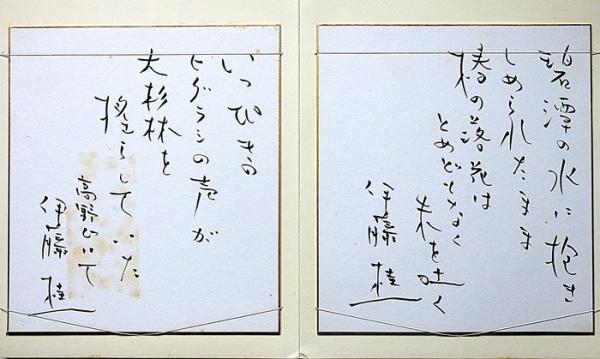 碧潭の水に抱き
しめられたまま
椿の落花は
とめどもなく
朱を吐く
伊藤桂一
いっぴきの
ヒグラシの声が
大杉林を
揺らしていた
高野山にて
伊藤桂一